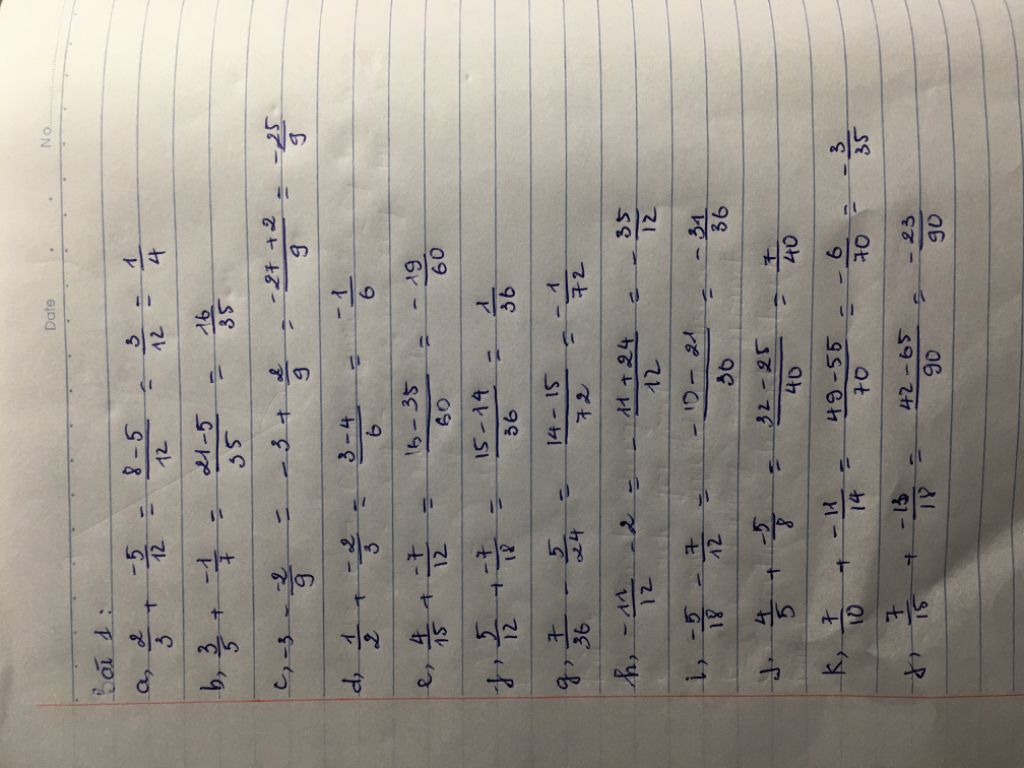 Date No.
Bài 1:
a, 2/3 + -5/12 = 8-5/12 = 3/12 = 1/4
b, 3/5 + -1/7 = 21-5/35 = 16/35
c, -3 - -2/9 = -3 + 2/9 = -27+2/9 = -25/9
d, 1/2 + -2/3 = 3-4/6 = -1/6
e, 4/15 + -7/12 = 16-35/60 = -19/60
f, 5/12 + -7/18 = 15-14/36 = 1/36
g, 7/36 - 5/24 = 14-15/72 = -1/72
h, -11/12 - 2 = -11+24/12 = -35/12
i, -5/18 - 7/12 = -10-21/36 = -31/36
j. 4/5 + -5/8 = 32-25/40 = 7/40
k, 7/10 + -11/14 = 49-55/70 = -6/70 = -3/35
f, 7/15 + -13/18 = 42-65/90 = -23/90